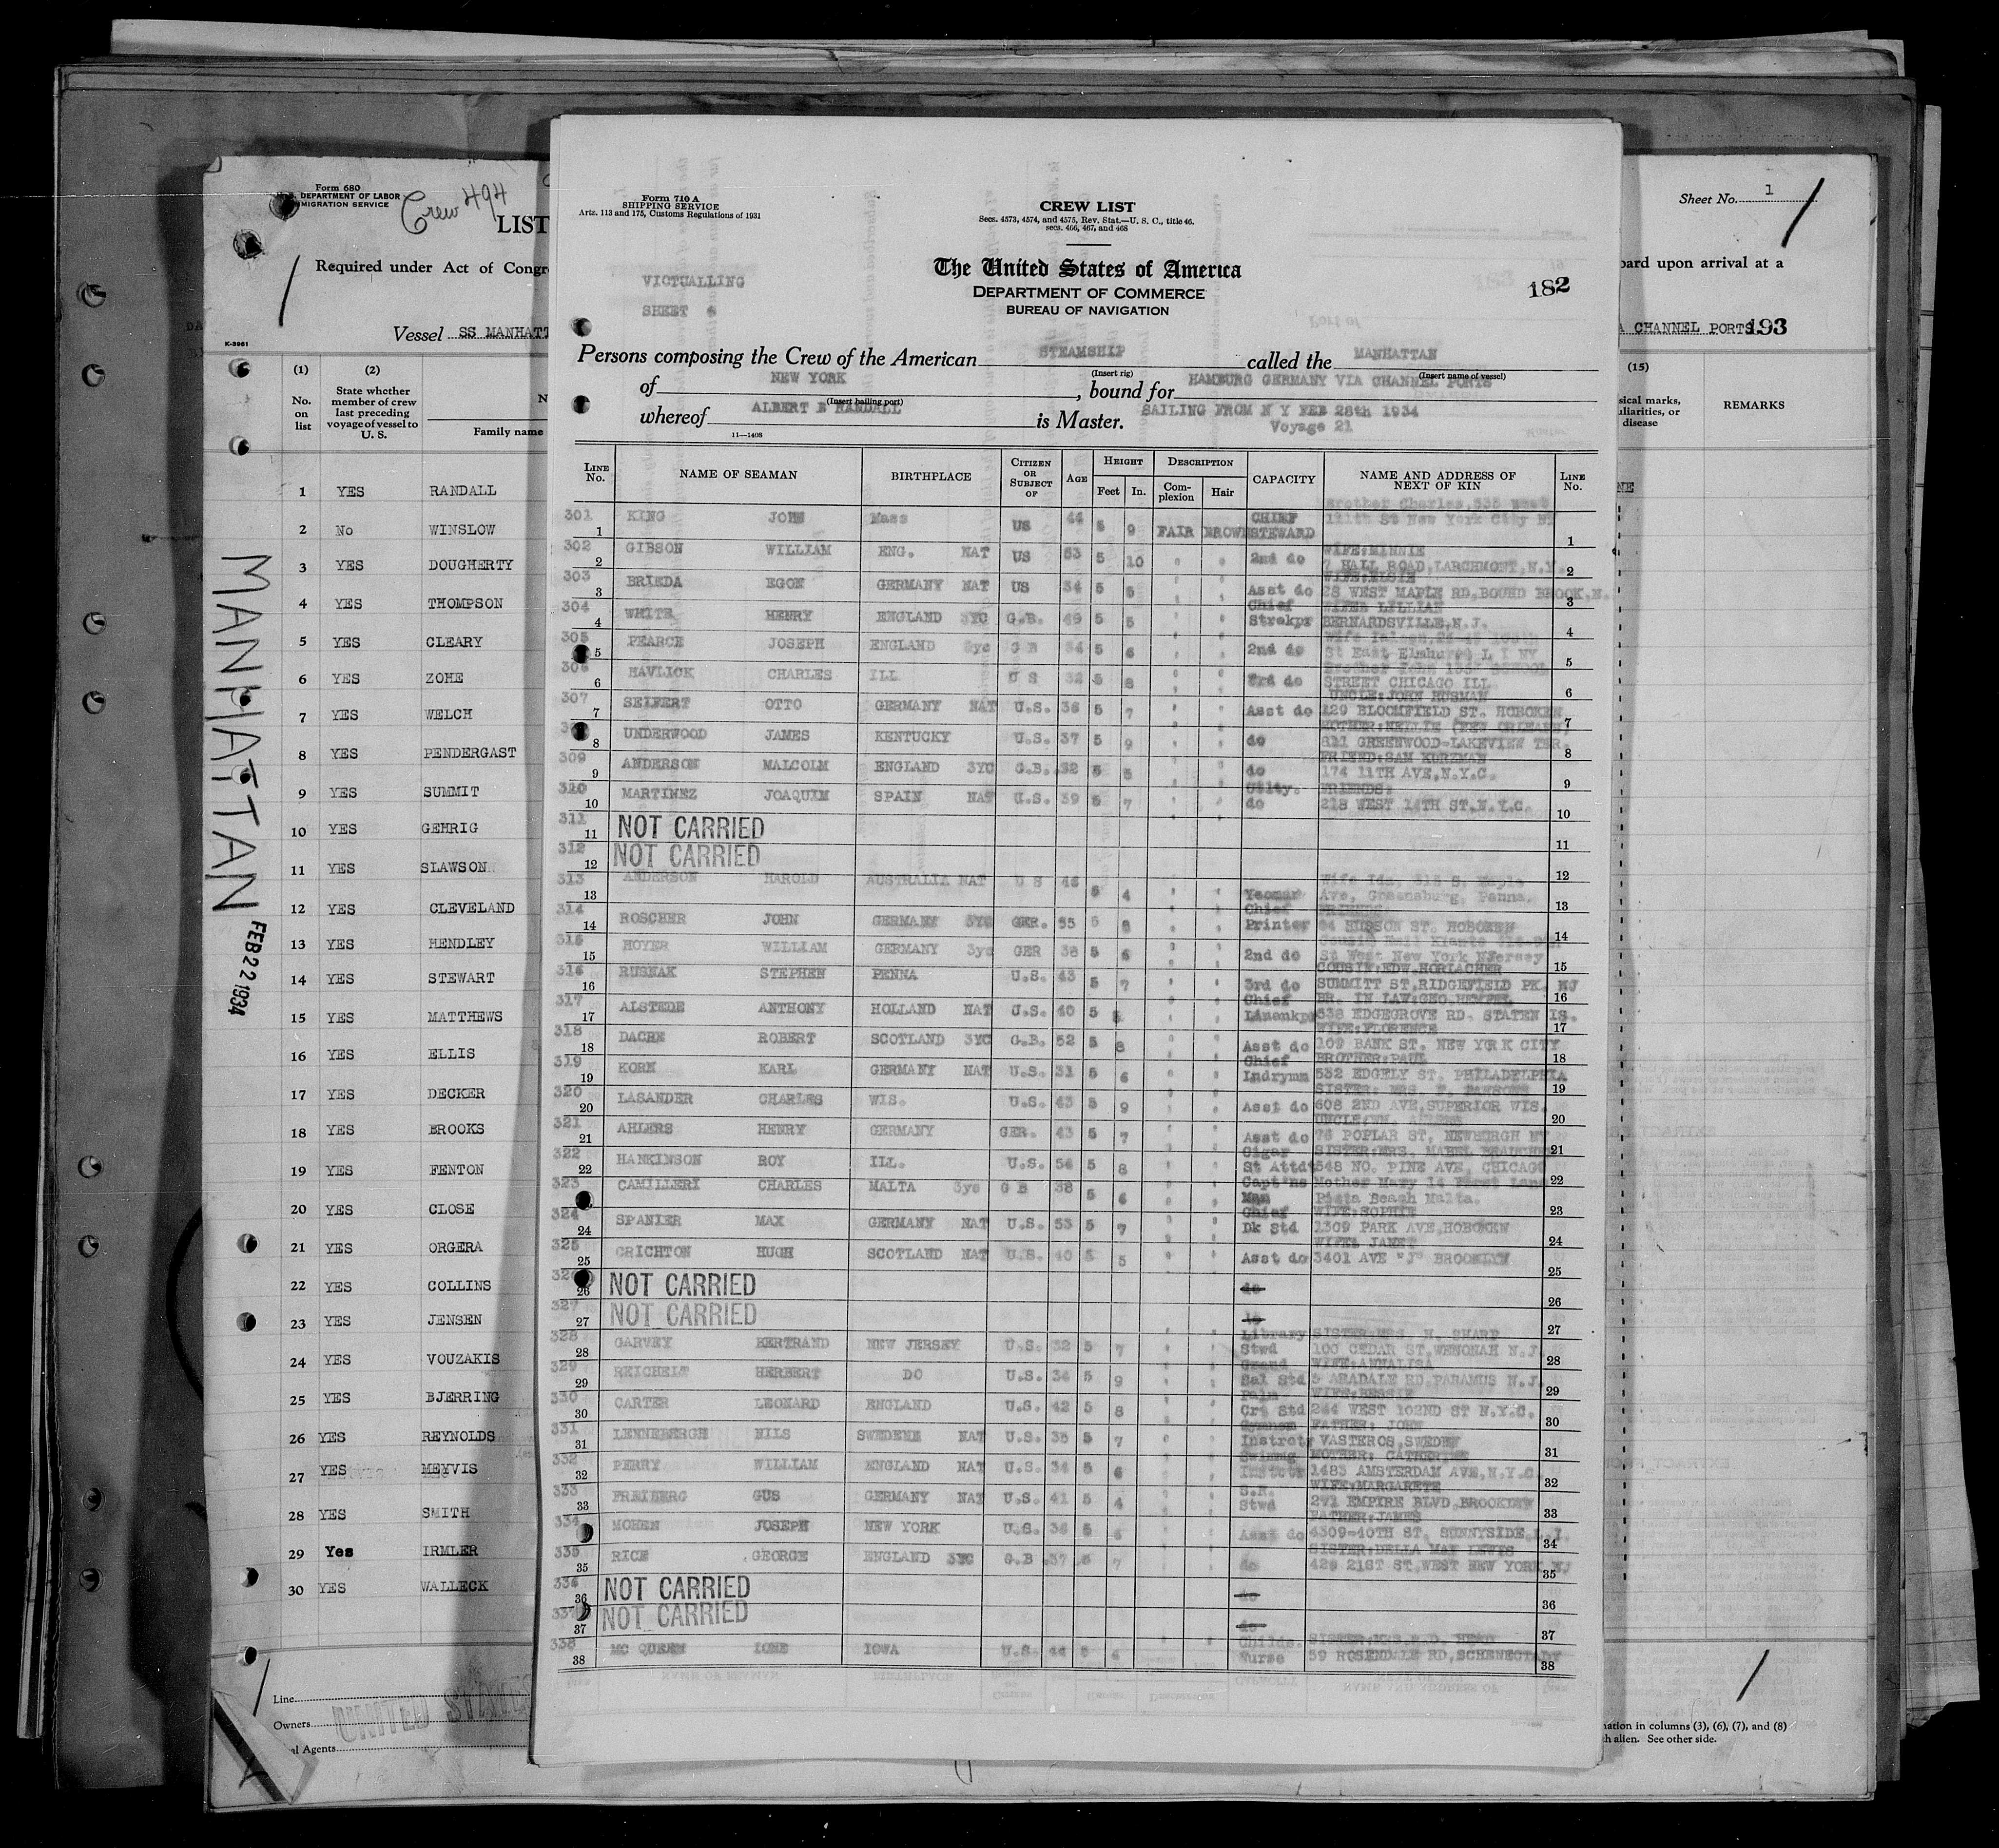 Form 680
DEPARTMENT OF LABOR
MIGRATION SERVICE
Crew 494
LIST
Required under Act of Congr
Vessel SS MANHATT
K-3961
(1) (2)
No. on list
State whether member of crew last preceding voyage of vessel to U. S.
Family name
1 YES RANDALL
2 No WINSLOW
3 YES DOUGHERTY
4 YES THOMPSON
5 YES CLEARY
6 YES ZOHE
7 YES WELCH
8 YES PENDERGAST
9 YES SUMMIT
10 YES GEHRIG
11 YES SLAWSON
12 YES CLEVELAND
13 YES HENDLEY
14 YES STEWART
15 YES MATTHEWS
16 YES ELLIS
17 YES DECKER
18 YES BROOKS
19 YES FENTON
20 YES CLOSE
21 YES ORGERA
22 YES COLLINS
23 YES JENSEN
24 YES VOUZAKIS
25 YES BJERRING
26 YES REYNOLDS
27 YES MEYVIS
28 YES SMITH
29 Yes IRMLER
30 YES WALLECK
Line
Owners
al Agents
UNITED STATES
MANHATTAN
FEB 22 1934
Form 710 A
SHIPPING SERVICE
Arts. 113 and 175, Customs Regulations of 1931
CREW LIST
Secs. 4573, 4574, and 4575, Rev. Stat.—U. S. C., title 46.
secs. 466, 467, and 468
The United States of America
DEPARTMENT OF COMMERCE
BUREAU OF NAVIGATION
VICTUALLING
SHEET
182
Persons composing the Crew of the American STEAMSHIP called the MANHATTAN
(Insert rig) (Insert name of vessel)
of NEW YORK, bound for HAMBURG GERMANY VIA CHANNEL PORTS
(Insert hailing port)
whereof ALBERT B RANDALL is Master. SAILING FROM N Y FEB 28th 1934
11—1408 Voyage 21
LINE No. NAME OF SEAMAN BIRTHPLACE CITIZEN OR SUBJECT OF AGE HEIGHT Feet In. DESCRIPTION Complexion Hair CAPACITY NAME AND ADDRESS OF NEXT OF KIN LINE No.
301 1 KING JOHN Mass US 44 5 9 FAIR BROWN CHIEF STEWARD Brother Charles, 535 West 111th St New York City NY 1
302 2 GIBSON WILLIAM ENG. NAT US 53 5 10 " " 2nd do WIFE:MINNIE 7 HALL ROAD, LARCHMONT, N.Y. 2
303 3 BRIEDA EGON GERMANY NAT US 34 5 5 " " Asst do WIFE:ELSIE 28 WEST MAPLE RD, BOUND BROOK, N. 3
304 4 WHITE HENRY ENGLAND 3YC G.B. 49 5 5 " " Chief Strekpr LILLIAN BERNARDSVILLE, N.J. 4
305 5 PEARCE JOSEPH ENGLAND 3yc G B 34 5 6 " " 2nd do St East Elmhurst L I NY 5
306 6 HAVLICK CHARLES ILL U S 32 5 8 " " 3rd do STREET CHICAGO ILL 6
307 7 SEIFERT OTTO GERMANY NAT U.S. 36 5 7 " " Asst do UNCLE:JOHN HUSMAN 129 BLOOMFIELD ST. HOBOKEN 7
8 UNDERWOOD JAMES KENTUCKY U.S. 37 5 9 " " do MOTHER:NELLIE (NEW ORLEANS) 811 GREENWOOD-LAKEVIEW TER. 8
309 9 ANDERSON MALCOLM ENGLAND 3YC G.B. 32 5 5 " " do FRIEND:SAM KURZMAN 174 11TH AVE, N.Y.C. 9
310 10 MARTINEZ JOAQUIN SPAIN NAT U.S. 39 5 7 " " Utilty. do FRIENDS: 218 WEST 14TH ST. N.Y.C. 10
311 11 NOT CARRIED 11
312 12 NOT CARRIED 12
313 13 ANDERSON HAROLD AUSTRALIA NAT U S 46 5 4 " " Yeoman Wife Ida, 315 S. Maple Ave, Greensburg, Penna. 13
314 14 ROSCHER JOHN GERMANY 3YC GER. 55 5 8 " " Chief Printer HUDSON ST. HOBOKEN 14
315 15 HOYER WILLIAM GERMANY 3yc GER 38 5 6 " " 2nd do St West New York NJersey 15
316 16 RUSNAK STEPHEN PENNA U.S. 43 5 7 " " 3rd do COUSIN:EDW. HORLACHER SUMMITT ST, RIDGEFIELD PK. NJ 16
317 17 ALSTEDE ANTHONY HOLLAND NAT U.S. 40 5 " " Chief Linenkpr BR. IN LAW:GEO. HEMPEL 538 EDGEGROVE RD. STATEN IS. 17
318 18 DACRE ROBERT SCOTLAND 3YC G.B. 52 5 8 " " Asst do WIFE:FLORENCE 109 BANK ST. NEW YORK CITY 18
319 19 KORN KARL GERMANY NAT U.S. 31 5 6 " " Chief lndrymn BROTHER:PAUL 532 EDGELY ST. PHILADELPHIA 19
320 20 LASANDER CHARLES WIS. U.S. 43 5 9 " " Asst do SISTER: MRS 608 2ND AVE, SUPERIOR WIS. 20
321 21 AHLERS HENRY GERMANY GER. 43 5 7 " " Asst do UNCLE:WM. AHLERS 76 POPLAR ST, NEWBURGH NY 21
322 22 HANKINSON ROY ILL. U.S. 54 5 8 " " Cigar St Attdt SISTER:MRS. MABEL 548 NO. PINE AVE, CHICAGO 22
323 CAMILLERI CHARLES MALTA 3yc G B 38 5 6 " " Capt's Man Mother Mary 14 Lane Pieta Beach Malta. 23
324 24 SPANIER MAX GERMANY NAT U.S. 53 5 7 " " Chief Dk Std WIFE:SOPHIE 1309 PARK AVE, HOBOKEN 24
325 25 CRICHTON HUGH SCOTLAND NAT U.S. 40 5 5 " " Asst do WIFE: JANET 3401 AVE "J" BROOKLYN 25
326 26 NOT CARRIED do 26
327 27 NOT CARRIED do 27
328 28 GARVEY BERTRAND NEW JERSEY U.S. 32 5 7 " " Library Stwd SISTER:MRS. H. SHARP 100 CEDAR ST, WENONAH N.J. 28
329 29 REICHELT HERBERT DO U.S. 34 5 9 " " Grand Sal Std WIFE:ANNALISA 5 ARADALE RD, PARAMUS N.J. 29
330 30 CARTER LEONARD ENGLAND U.S. 42 5 8 " " Palm Crt Std WIFE:BESSIE 244 WEST 102ND ST N.Y.C. 30
331 31 LENNEBERGH NILS SWEDENE NAT U.S. 35 5 7 " " Gymnsm Instrctr FATHER: JOHN VASTEROS, SWEDEN 31
332 32 PERRY WILLIAM ENGLAND NAT U.S. 34 5 6 " " Swimmg Instctr MOTHER: CATHERINE 1483 AMSTERDAM AVE, N.Y.C. 32
333 33 FREIBERG GUS GERMANY NAT U.S. 41 5 4 " " S.R. Stwd WIFE:MARGARETE 271 EMPIRE BLVD, BROOKLYN 33
334 MOHEN JOSEPH NEW YORK U.S. 36 5 6 " " Asst do FATHER:JAMES 4309-40TH ST. SUNNYSIDE, L.I. 34
335 35 RICE GEORGE ENGLAND 3YC G.B. 37 5 7 " " do SISTER:DELLA MAY LEWIS 429 21ST ST, WEST NEW YORK NJ 35
336 36 NOT CARRIED do 36
337 37 NOT CARRIED do 37
338 38 MC QUEEN IONE IOWA U.S. 44 5 6 " " Childs. Nurse 59 ROSENDALE RD, SCHENECTADY 38
Sheet No. 1
oard upon arrival at a
A CHANNEL PORTS 193
(15)
sical marks, uliarities, or disease
REMARKS
NE
nation in columns (3), (6), (7), and (8)
h alien. See other side.